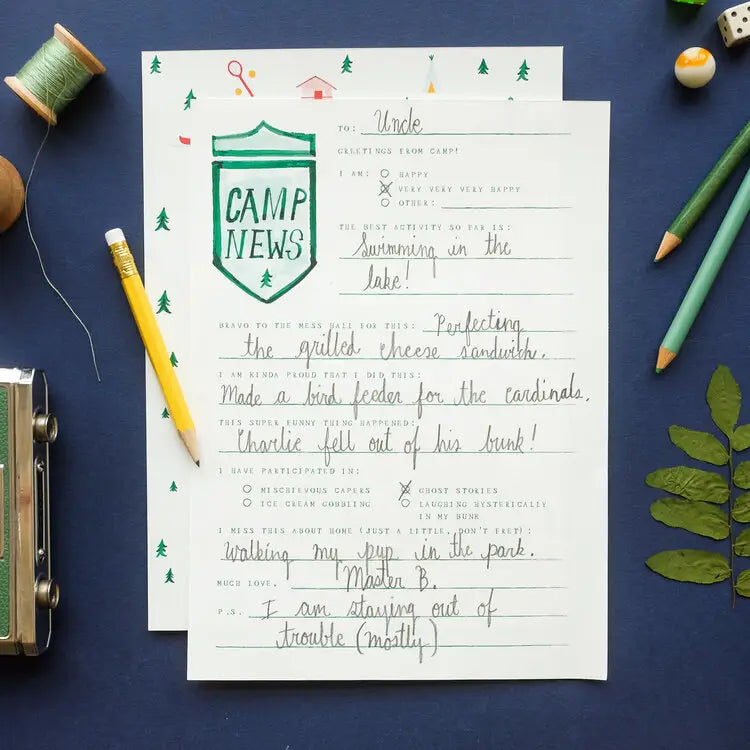 CAMP
NEWS
TO: Uncle
GREETINGS FROM CAMP!
I AM: HAPPY
VERY VERY VERY HAPPY
OTHER:
THE BEST ACTIVITY SO FAR IS:
Swimming in the
lake!
BRAVO TO THE MESS HALL FOR THIS: Perfecting
the grilled cheese sandwich.
I AM KINDA PROUD THAT I DID THIS:
Made a bird feeder for the cardinals.
THIS SUPER FUNNY THING HAPPENED:
Charlie fell out of his bunk!
I HAVE PARTICIPATED IN:
MISCHIEVOUS CAPERS GHOST STORIES
ICE CREAM GOBBLING LAUGHING HYSTERICALLY
IN MY BUNK
I MISS THIS ABOUT HOME (JUST A LITTLE, DON'T FRET):
Walking my pup in the park.
MUCH LOVE, Master B.
P.S. I am staying out of
trouble (mostly)